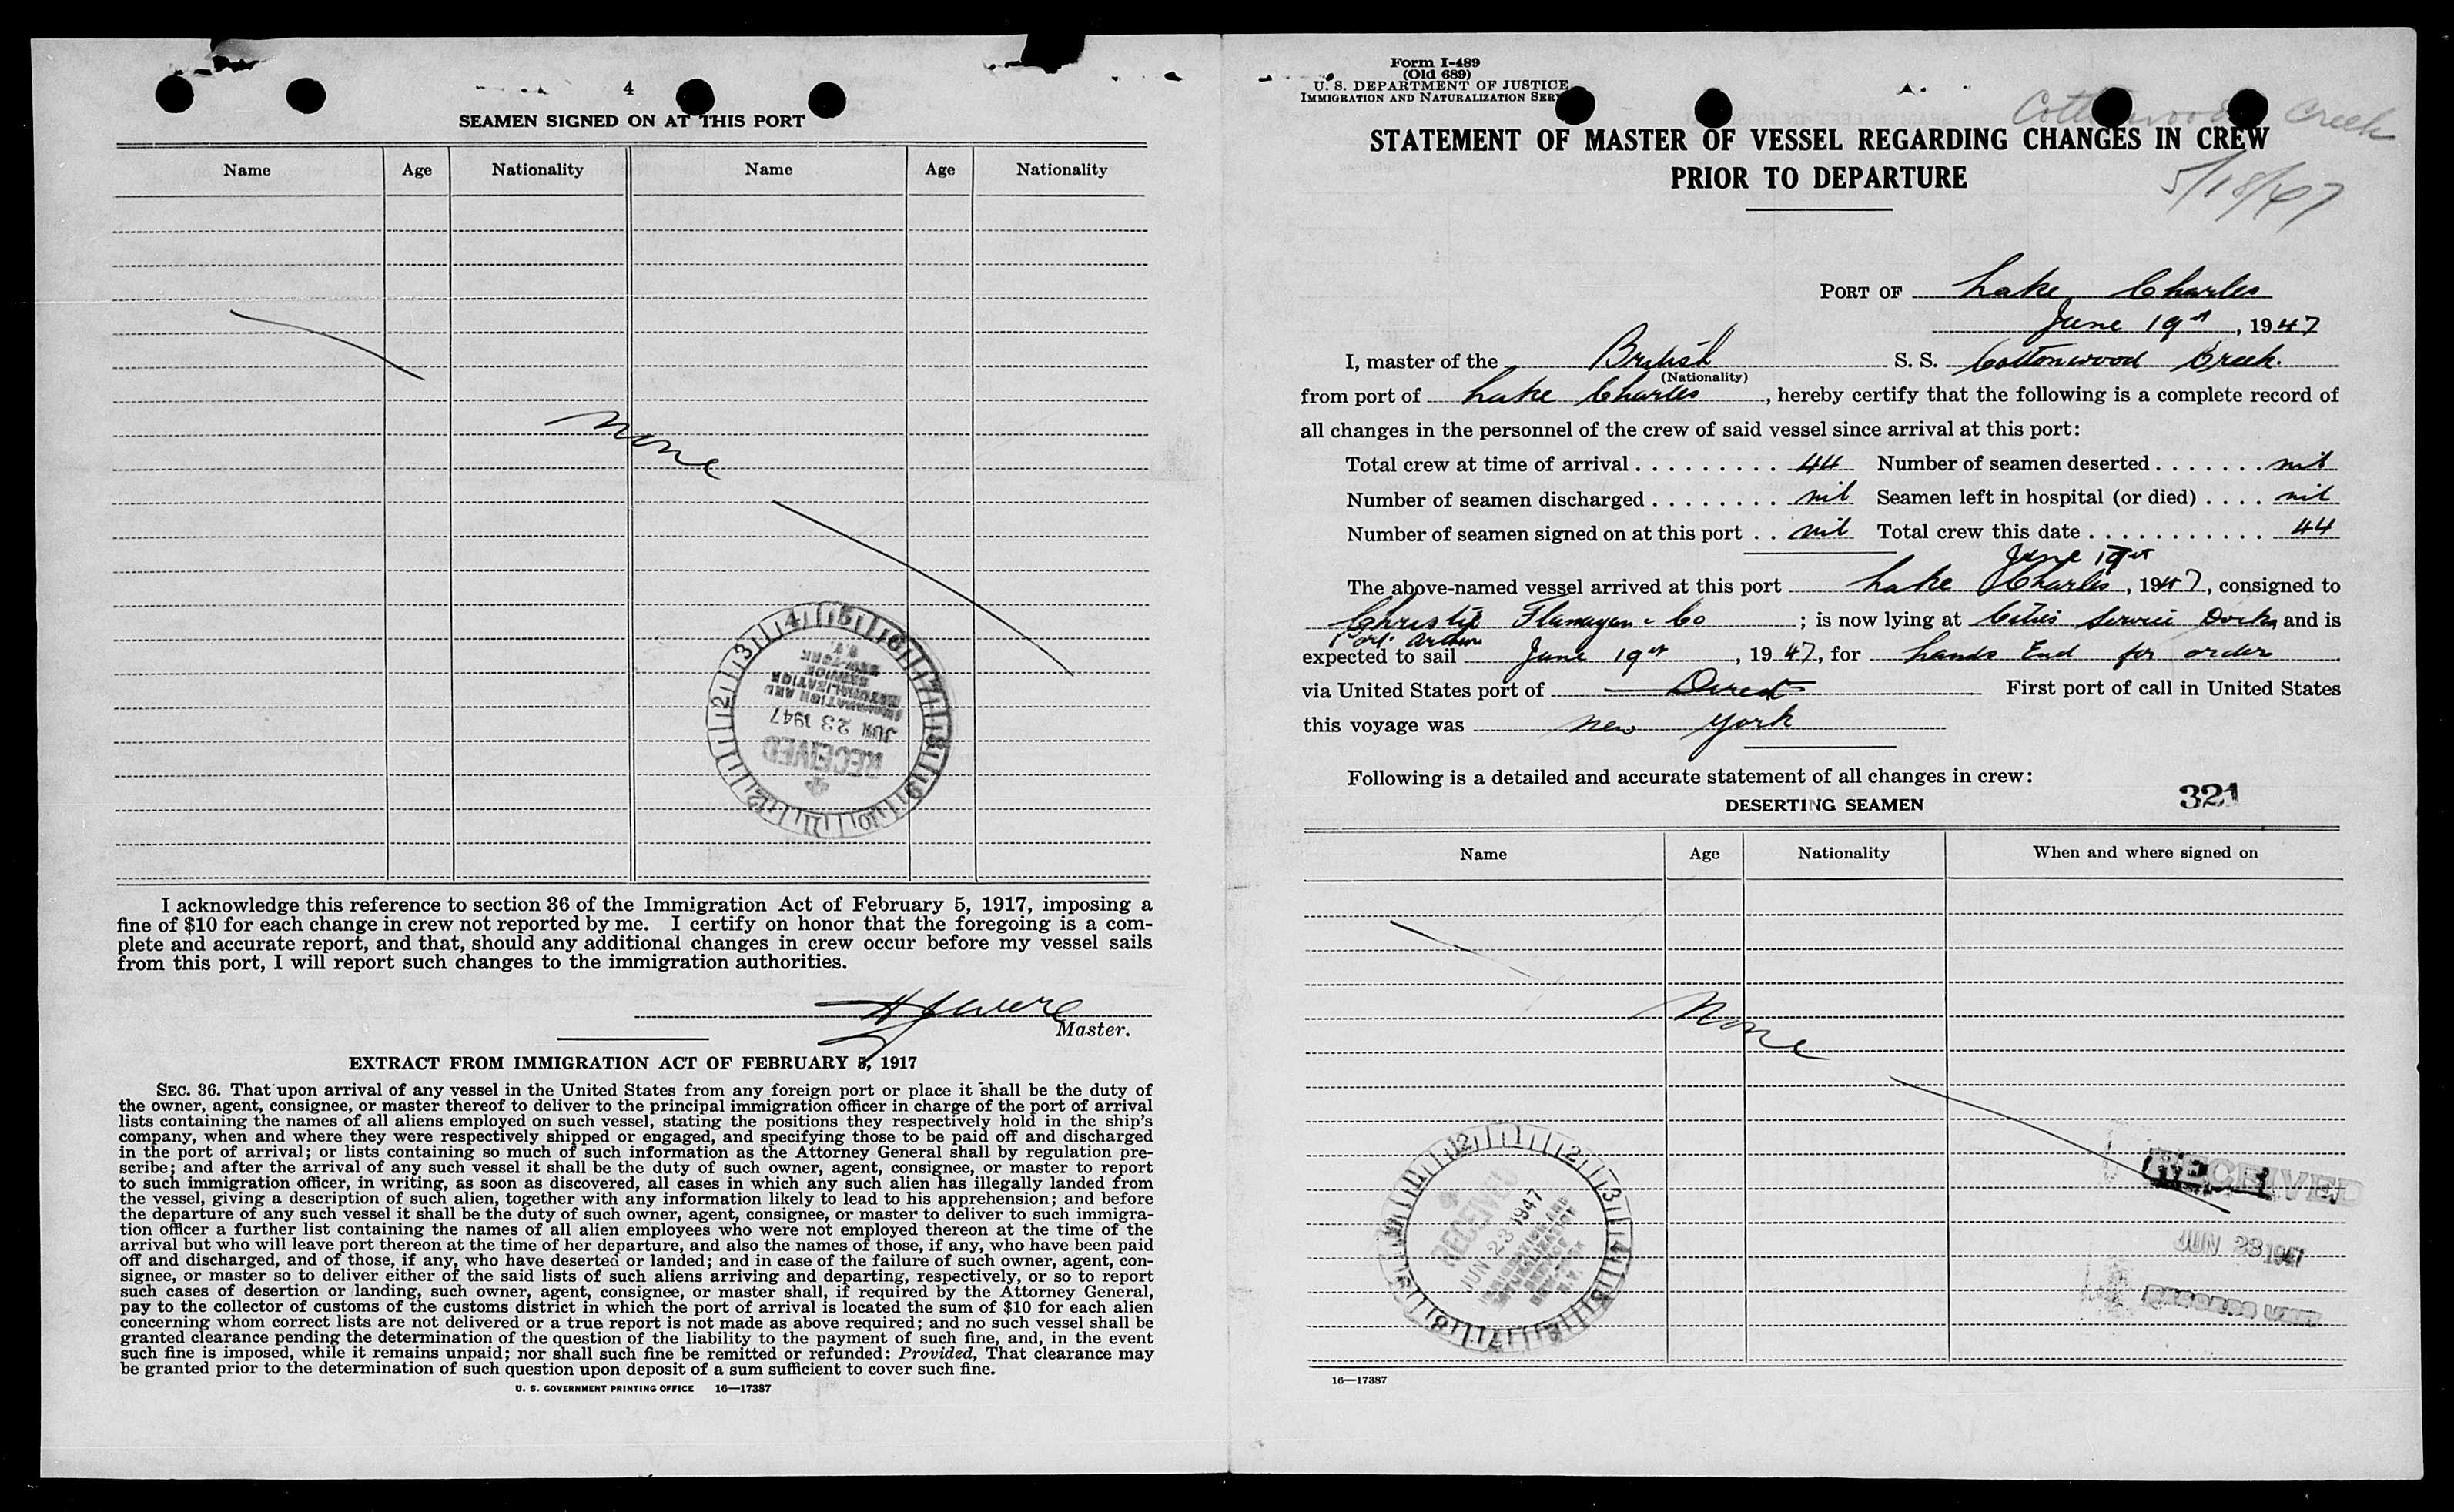 4
SEAMEN SIGNED ON AT THIS PORT
Name Age Nationality Name Age Nationality
None
RECEIVED
JUN 23 1947
IMMIGRATION AND
NATURALIZATION
SERVICE
NEW YORK
N.Y.
I acknowledge this reference to section 36 of the Immigration Act of February 5, 1917, imposing a
fine of $10 for each change in crew not reported by me. I certify on honor that the foregoing is a com-
plete and accurate report, and that, should any additional changes in crew occur before my vessel sails
from this port, I will report such changes to the immigration authorities.
Master.
EXTRACT FROM IMMIGRATION ACT OF FEBRUARY 5, 1917
SEC. 36. That upon arrival of any vessel in the United States from any foreign port or place it shall be the duty of
the owner, agent, consignee, or master thereof to deliver to the principal immigration officer in charge of the port of arrival
lists containing the names of all aliens employed on such vessel, stating the positions they respectively hold in the ship's
company, when and where they were respectively shipped or engaged, and specifying those to be paid off and discharged
in the port of arrival; or lists containing so much of such information as the Attorney General shall by regulation pre-
scribe; and after the arrival of any such vessel it shall be the duty of such owner, agent, consignee, or master to report
to such immigration officer, in writing, as soon as discovered, all cases in which any such alien has illegally landed from
the vessel, giving a description of such alien, together with any information likely to lead to his apprehension; and before
the departure of any such vessel it shall be the duty of such owner, agent, consignee, or master to deliver to such immigra-
tion officer a further list containing the names of all alien employees who were not employed thereon at the time of the
arrival but who will leave port thereon at the time of her departure, and also the names of those, if any, who have been paid
off and discharged, and of those, if any, who have deserted or landed; and in case of the failure of such owner, agent, con-
signee, or master so to deliver either of the said lists of such aliens arriving and departing, respectively, or so to report
such cases of desertion or landing, such owner, agent, consignee, or master shall, if required by the Attorney General,
pay to the collector of customs of the customs district in which the port of arrival is located the sum of $10 for each alien
concerning whom correct lists are not delivered or a true report is not made as above required; and no such vessel shall be
granted clearance pending the determination of the question of the liability to the payment of such fine, and, in the event
such fine is imposed, while it remains unpaid; nor shall such fine be remitted or refunded: Provided, That clearance may
be granted prior to the determination of such question upon deposit of a sum sufficient to cover such fine.
U. S. GOVERNMENT PRINTING OFFICE 16—17387
Form I-489
(Old 689)
U. S. DEPARTMENT OF JUSTICE
IMMIGRATION AND NATURALIZATION SERV
Cottonwood Creek
STATEMENT OF MASTER OF VESSEL REGARDING CHANGES IN CREW
PRIOR TO DEPARTURE
5/18/47
PORT OF Lake Charles
June 19th, 1947
I, master of the British S. S. Cottonwood Creek.
(Nationality)
from port of Lake Charles, hereby certify that the following is a complete record of
all changes in the personnel of the crew of said vessel since arrival at this port:
Total crew at time of arrival . . . . . . . . . 44 Number of seamen deserted . . . . . . . nil
Number of seamen discharged . . . . . . . . nil Seamen left in hospital (or died) . . . . nil
Number of seamen signed on at this port . . nil Total crew this date . . . . . . . . . . . 44
June 19th
The above-named vessel arrived at this port Lake Charles, 1947, consigned to
Christie Flanagan & Co ; is now lying at Cities Service Docks and is
Port Arthur
expected to sail June 19th, 1947, for Lands End for order
via United States port of Direct First port of call in United States
this voyage was New York
Following is a detailed and accurate statement of all changes in crew:
DESERTING SEAMEN 321
Name Age Nationality When and where signed on
None
RECEIVED
JUN 23 1947
IMMIGRATION AND
NATURALIZATION
SERVICE
NEW YORK
N.Y.
RECEIVED
JUN 23 1947
RECORDS UNIT
16—17387